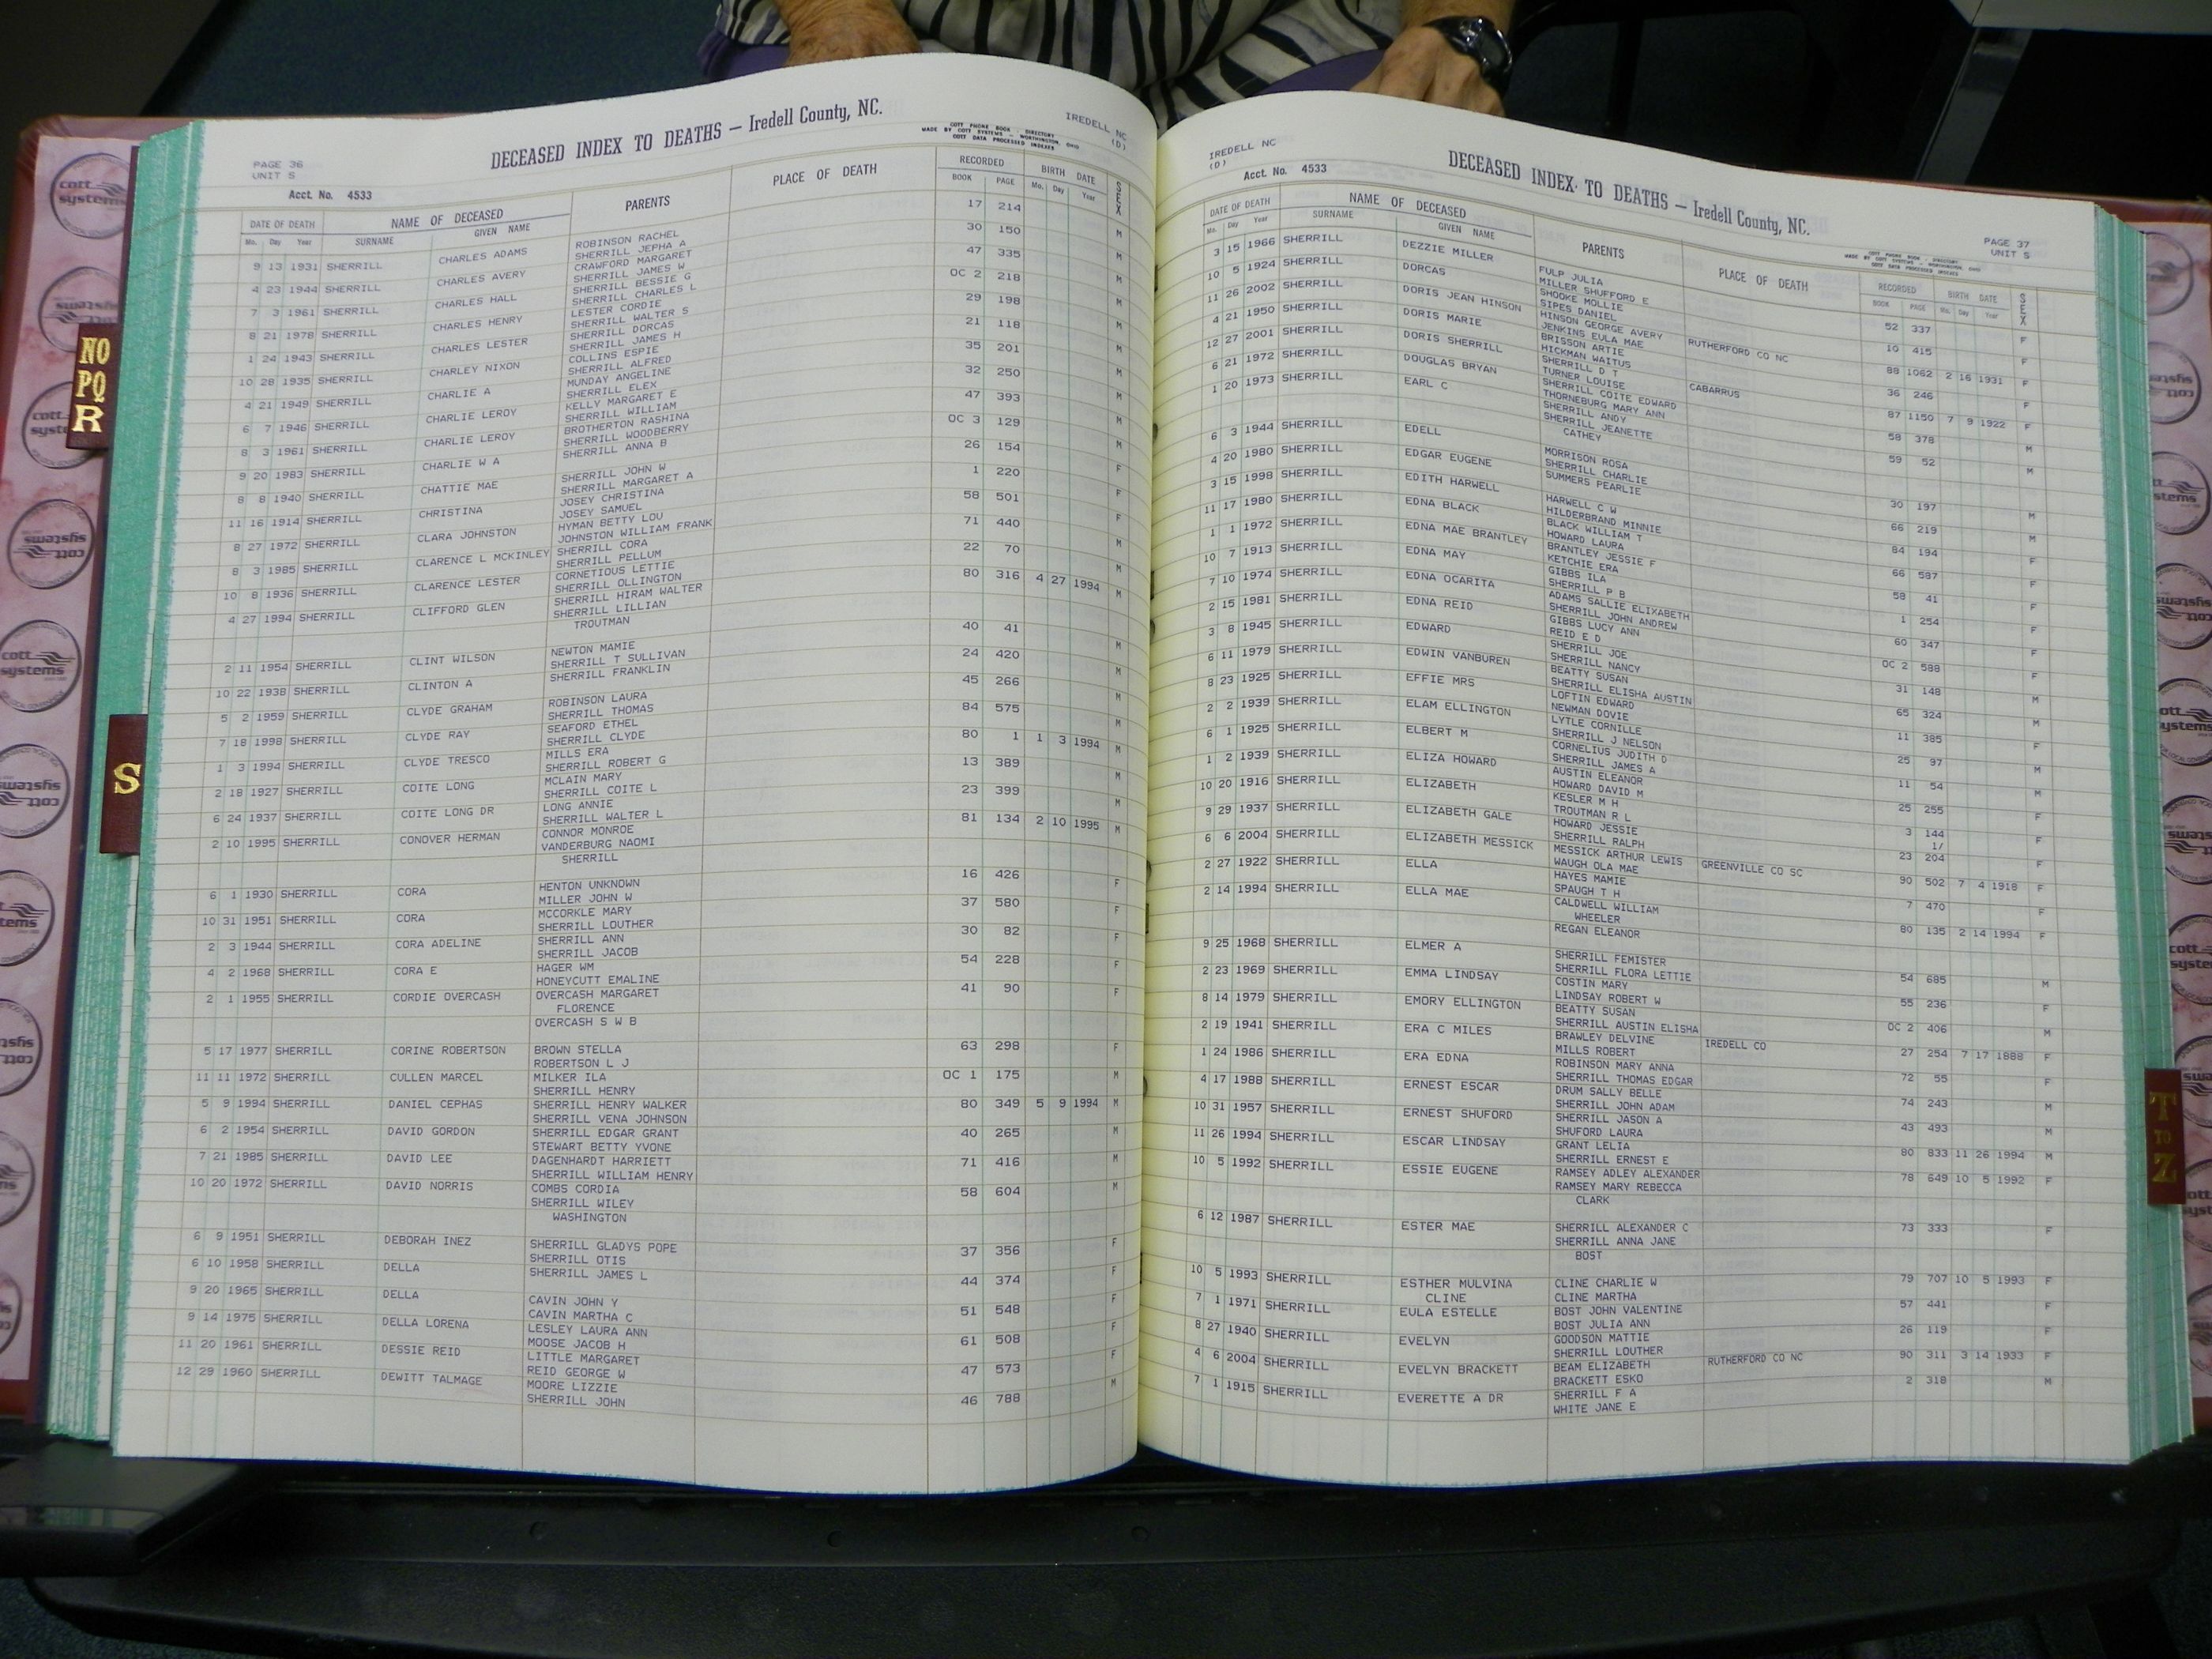 DECEASED INDEX TO DEATHS — Iredell County, NC.
IREDELL NC
(D)
COTT PHONE BOOK - DIRECTORY
MADE BY COTT SYSTEMS — WORTHINGTON, OHIO
COTT DATA PROCESSED INDEXES
PAGE 36
UNIT S
Acct. No. 4533
DATE OF DEATH NAME OF DECEASED PARENTS PLACE OF DEATH RECORDED BIRTH DATE SEX
Mo. Day Year SURNAME GIVEN NAME BOOK PAGE Mo. Day Year
9 13 1931 SHERRILL CHARLES ADAMS ROBINSON RACHEL 17 214 M
SHERRILL JEPHA A
4 23 1944 SHERRILL CHARLES AVERY CRAWFORD MARGARET 30 150 M
SHERRILL JAMES W
7 3 1961 SHERRILL CHARLES HALL SHERRILL BESSIE G 47 335 M
SHERRILL CHARLES L
8 21 1978 SHERRILL CHARLES HENRY LESTER CORDIE OC 2 218 M
SHERRILL WALTER S
1 24 1943 SHERRILL CHARLES LESTER SHERRILL DORCAS 29 198 M
SHERRILL JAMES H
10 28 1935 SHERRILL CHARLEY NIXON COLLINS ESPIE 21 118 M
SHERRILL ALFRED
4 21 1949 SHERRILL CHARLIE A MUNDAY ANGELINE 35 201 M
SHERRILL ELEX
6 7 1946 SHERRILL CHARLIE LEROY KELLY MARGARET E 32 250 M
SHERRILL WILLIAM
8 3 1961 SHERRILL CHARLIE LEROY BROTHERTON RASHINA 47 393 M
SHERRILL WOODBERRY
9 20 1983 SHERRILL CHARLIE W A SHERRILL ANNA B OC 3 129 M
SHERRILL JOHN W
8 8 1940 SHERRILL CHATTIE MAE SHERRILL MARGARET A 26 154 F
11 16 1914 SHERRILL CHRISTINA JOSEY CHRISTINA 1 220 F
JOSEY SAMUEL
8 27 1972 SHERRILL CLARA JOHNSTON HYMAN BETTY LOU 58 501
JOHNSTON WILLIAM FRANK
8 3 1985 SHERRILL CLARENCE L MCKINLEY SHERRILL CORA 71 440 M
SHERRILL PELLUM
10 8 1936 SHERRILL CLARENCE LESTER CORNETIOUS LETTIE 22 70 M
SHERRILL OLLINGTON
4 27 1994 SHERRILL CLIFFORD GLEN SHERRILL HIRAM WALTER 80 316 4 27 1994 M
SHERRILL LILLIAN
TROUTMAN
2 11 1954 SHERRILL CLINT WILSON NEWTON MAMIE 40 41 M
SHERRILL T SULLIVAN
10 22 1938 SHERRILL CLINTON A SHERRILL FRANKLIN 24 420 M
5 2 1959 SHERRILL CLYDE GRAHAM ROBINSON LAURA 45 266 M
SHERRILL THOMAS
7 18 1998 SHERRILL CLYDE RAY SEAFORD ETHEL 84 575 M
SHERRILL CLYDE
1 3 1994 SHERRILL CLYDE TRESCO MILLS ERA 80 1 1 3 1994 M
SHERRILL ROBERT G
2 18 1927 SHERRILL COITE LONG MCLAIN MARY 13 389 M
SHERRILL COITE L
6 24 1937 SHERRILL COITE LONG DR LONG ANNIE 23 399 M
SHERRILL WALTER L
2 10 1995 SHERRILL CONOVER HERMAN CONNOR MONROE 81 134 2 10 1995 M
VANDERBURG NAOMI
SHERRILL
6 1 1930 SHERRILL CORA HENTON UNKNOWN 16 426 F
MILLER JOHN W
10 31 1951 SHERRILL CORA MCCORKLE MARY 37 580 F
SHERRILL LOUTHER
2 3 1944 SHERRILL CORA ADELINE SHERRILL ANN 30 82 F
SHERRILL JACOB
4 2 1968 SHERRILL CORA E HAGER WM 54 228 F
HONEYCUTT EMALINE
2 1 1955 SHERRILL CORDIE OVERCASH OVERCASH MARGARET 41 90 F
FLORENCE
OVERCASH S W B
5 17 1977 SHERRILL CORINE ROBERTSON BROWN STELLA 63 298 F
ROBERTSON L J
11 11 1972 SHERRILL CULLEN MARCEL MILKER ILA OC 1 175 M
SHERRILL HENRY
5 9 1994 SHERRILL DANIEL CEPHAS SHERRILL HENRY WALKER 80 349 5 9 1994 M
SHERRILL VENA JOHNSON
6 2 1954 SHERRILL DAVID GORDON SHERRILL EDGAR GRANT 40 265 M
STEWART BETTY YVONE
7 21 1985 SHERRILL DAVID LEE DAGENHARDT HARRIETT 71 416 M
SHERRILL WILLIAM HENRY
10 20 1972 SHERRILL DAVID NORRIS COMBS CORDIA 58 604 M
SHERRILL WILEY
WASHINGTON
6 9 1951 SHERRILL DEBORAH INEZ SHERRILL GLADYS POPE 37 356 F
SHERRILL OTIS
6 10 1958 SHERRILL DELLA SHERRILL JAMES L 44 374 F
9 20 1965 SHERRILL DELLA CAVIN JOHN Y 51 548 F
CAVIN MARTHA C
9 14 1975 SHERRILL DELLA LORENA LESLEY LAURA ANN 61 508 F
MOOSE JACOB H
11 20 1961 SHERRILL DESSIE REID LITTLE MARGARET 47 573 F
REID GEORGE W
12 29 1960 SHERRILL DEWITT TALMAGE MOORE LIZZIE 46 788 M
SHERRILL JOHN
IREDELL NC
(D)
DECEASED INDEX TO DEATHS — Iredell County, NC.
PAGE 37
UNIT S
Acct. No. 4533
COTT PHONE BOOK - DIRECTORY
MADE BY COTT SYSTEMS — WORTHINGTON, OHIO
COTT DATA PROCESSED INDEXES
DATE OF DEATH NAME OF DECEASED PARENTS PLACE OF DEATH RECORDED BIRTH DATE SEX
Mo. Day Year SURNAME GIVEN NAME BOOK PAGE Mo. Day Year
3 15 1966 SHERRILL DEZZIE MILLER FULP JULIA 52 337 F
MILLER SHUFFORD E
10 5 1924 SHERRILL DORCAS SHOOKE MOLLIE RUTHERFORD CO NC 10 415 F
SIPES DANIEL
11 26 2002 SHERRILL DORIS JEAN HINSON HINSON GEORGE AVERY 88 1062 2 16 1931 F
JENKINS EULA MAE
4 21 1950 SHERRILL DORIS MARIE BRISSON ARTIE CABARRUS 36 246 F
HICKMAN WAITUS
12 27 2001 SHERRILL DORIS SHERRILL SHERRILL D T 87 1150 7 9 1922 F
TURNER LOUISE
6 21 1972 SHERRILL DOUGLAS BRYAN SHERRILL COITE EDWARD 58 378 M
THORNEBURG MARY ANN
1 20 1973 SHERRILL EARL C SHERRILL ANDY 59 52 M
SHERRILL JEANETTE
CATHEY
6 3 1944 SHERRILL EDELL MORRISON ROSA 30 197 M
SHERRILL CHARLIE
4 20 1980 SHERRILL EDGAR EUGENE SUMMERS PEARLIE 66 219 M
3 15 1998 SHERRILL EDITH HARWELL HARWELL C W 84 194 F
HILDERBRAND MINNIE
11 17 1980 SHERRILL EDNA BLACK BLACK WILLIAM T 66 587 F
HOWARD LAURA
1 1 1972 SHERRILL EDNA MAE BRANTLEY BRANTLEY JESSIE F 58 41 F
KETCHIE ERA
10 7 1913 SHERRILL EDNA MAY GIBBS ILA 1 254 F
SHERRILL P B
7 10 1974 SHERRILL EDNA OCARITA ADAMS SALLIE ELIZABETH 60 347 F
SHERRILL JOHN ANDREW
2 15 1981 SHERRILL EDNA REID GIBBS LUCY ANN OC 2 588 F
REID E D
3 8 1945 SHERRILL EDWARD SHERRILL JOE 31 148 M
SHERRILL NANCY
6 11 1979 SHERRILL EDWIN VANBUREN BEATTY SUSAN 65 324 M
SHERRILL ELISHA AUSTIN
8 23 1925 SHERRILL EFFIE MRS LOFTIN EDWARD 11 385 F
NEWMAN DOVIE
2 2 1939 SHERRILL ELAM ELLINGTON LYTLE CORNILLE 25 97 M
SHERRILL J NELSON
6 1 1925 SHERRILL ELBERT M CORNELIUS JUDITH D 11 54 M
SHERRILL JAMES A
1 2 1939 SHERRILL ELIZA HOWARD AUSTIN ELEANOR 25 255 F
HOWARD DAVID M
10 20 1916 SHERRILL ELIZABETH KESLER M H 3 144
TROUTMAN R L 1/
9 29 1937 SHERRILL ELIZABETH GALE HOWARD JESSIE 23 204 F
SHERRILL RALPH
6 6 2004 SHERRILL ELIZABETH MESSICK MESSICK ARTHUR LEWIS GREENVILLE CO SC 90 502 7 4 1918 F
WAUGH OLA MAE
2 27 1922 SHERRILL ELLA HAYES MAMIE 7 470 F
SPAUGH T H
2 14 1994 SHERRILL ELLA MAE CALDWELL WILLIAM 80 135 2 14 1994 F
WHEELER
REGAN ELEANOR
9 25 1968 SHERRILL ELMER A SHERRILL FEMISTER 54 685 M
SHERRILL FLORA LETTIE
2 23 1969 SHERRILL EMMA LINDSAY COSTIN MARY 55 236 F
LINDSAY ROBERT W
8 14 1979 SHERRILL EMORY ELLINGTON BEATTY SUSAN OC 2 406 M
SHERRILL AUSTIN ELISHA
2 19 1941 SHERRILL ERA C MILES BRAWLEY DELVINE IREDELL CO 27 254 7 17 1888 F
MILLS ROBERT
1 24 1986 SHERRILL ERA EDNA ROBINSON MARY ANNA 72 55 F
SHERRILL THOMAS EDGAR
4 17 1988 SHERRILL ERNEST ESCAR DRUM SALLY BELLE 74 243 M
SHERRILL JOHN ADAM
10 31 1957 SHERRILL ERNEST SHUFORD SHERRILL JASON A 43 493 M
SHUFORD LAURA
11 26 1994 SHERRILL ESCAR LINDSAY GRANT LELIA 80 833 11 26 1994 M
SHERRILL ERNEST E
10 5 1992 SHERRILL ESSIE EUGENE RAMSEY ADLEY ALEXANDER 78 649 10 5 1992 F
RAMSEY MARY REBECCA
CLARK
6 12 1987 SHERRILL ESTER MAE SHERRILL ALEXANDER C 73 333 F
SHERRILL ANNA JANE
BOST
10 5 1993 SHERRILL ESTHER MULVINA CLINE CHARLIE W 79 707 10 5 1993 F
CLINE CLINE MARTHA
7 1 1971 SHERRILL EULA ESTELLE BOST JOHN VALENTINE 57 441 F
BOST JULIA ANN
8 27 1940 SHERRILL EVELYN GOODSON MATTIE 26 119 F
SHERRILL LOUTHER
4 6 2004 SHERRILL EVELYN BRACKETT BEAM ELIZABETH RUTHERFORD CO NC 90 311 3 14 1933 F
BRACKETT ESKO
7 1 1915 SHERRILL EVERETTE A DR SHERRILL F A 2 318 M
WHITE JANE E
NO
PQ
R
S
T
TO
Z
cott
systems